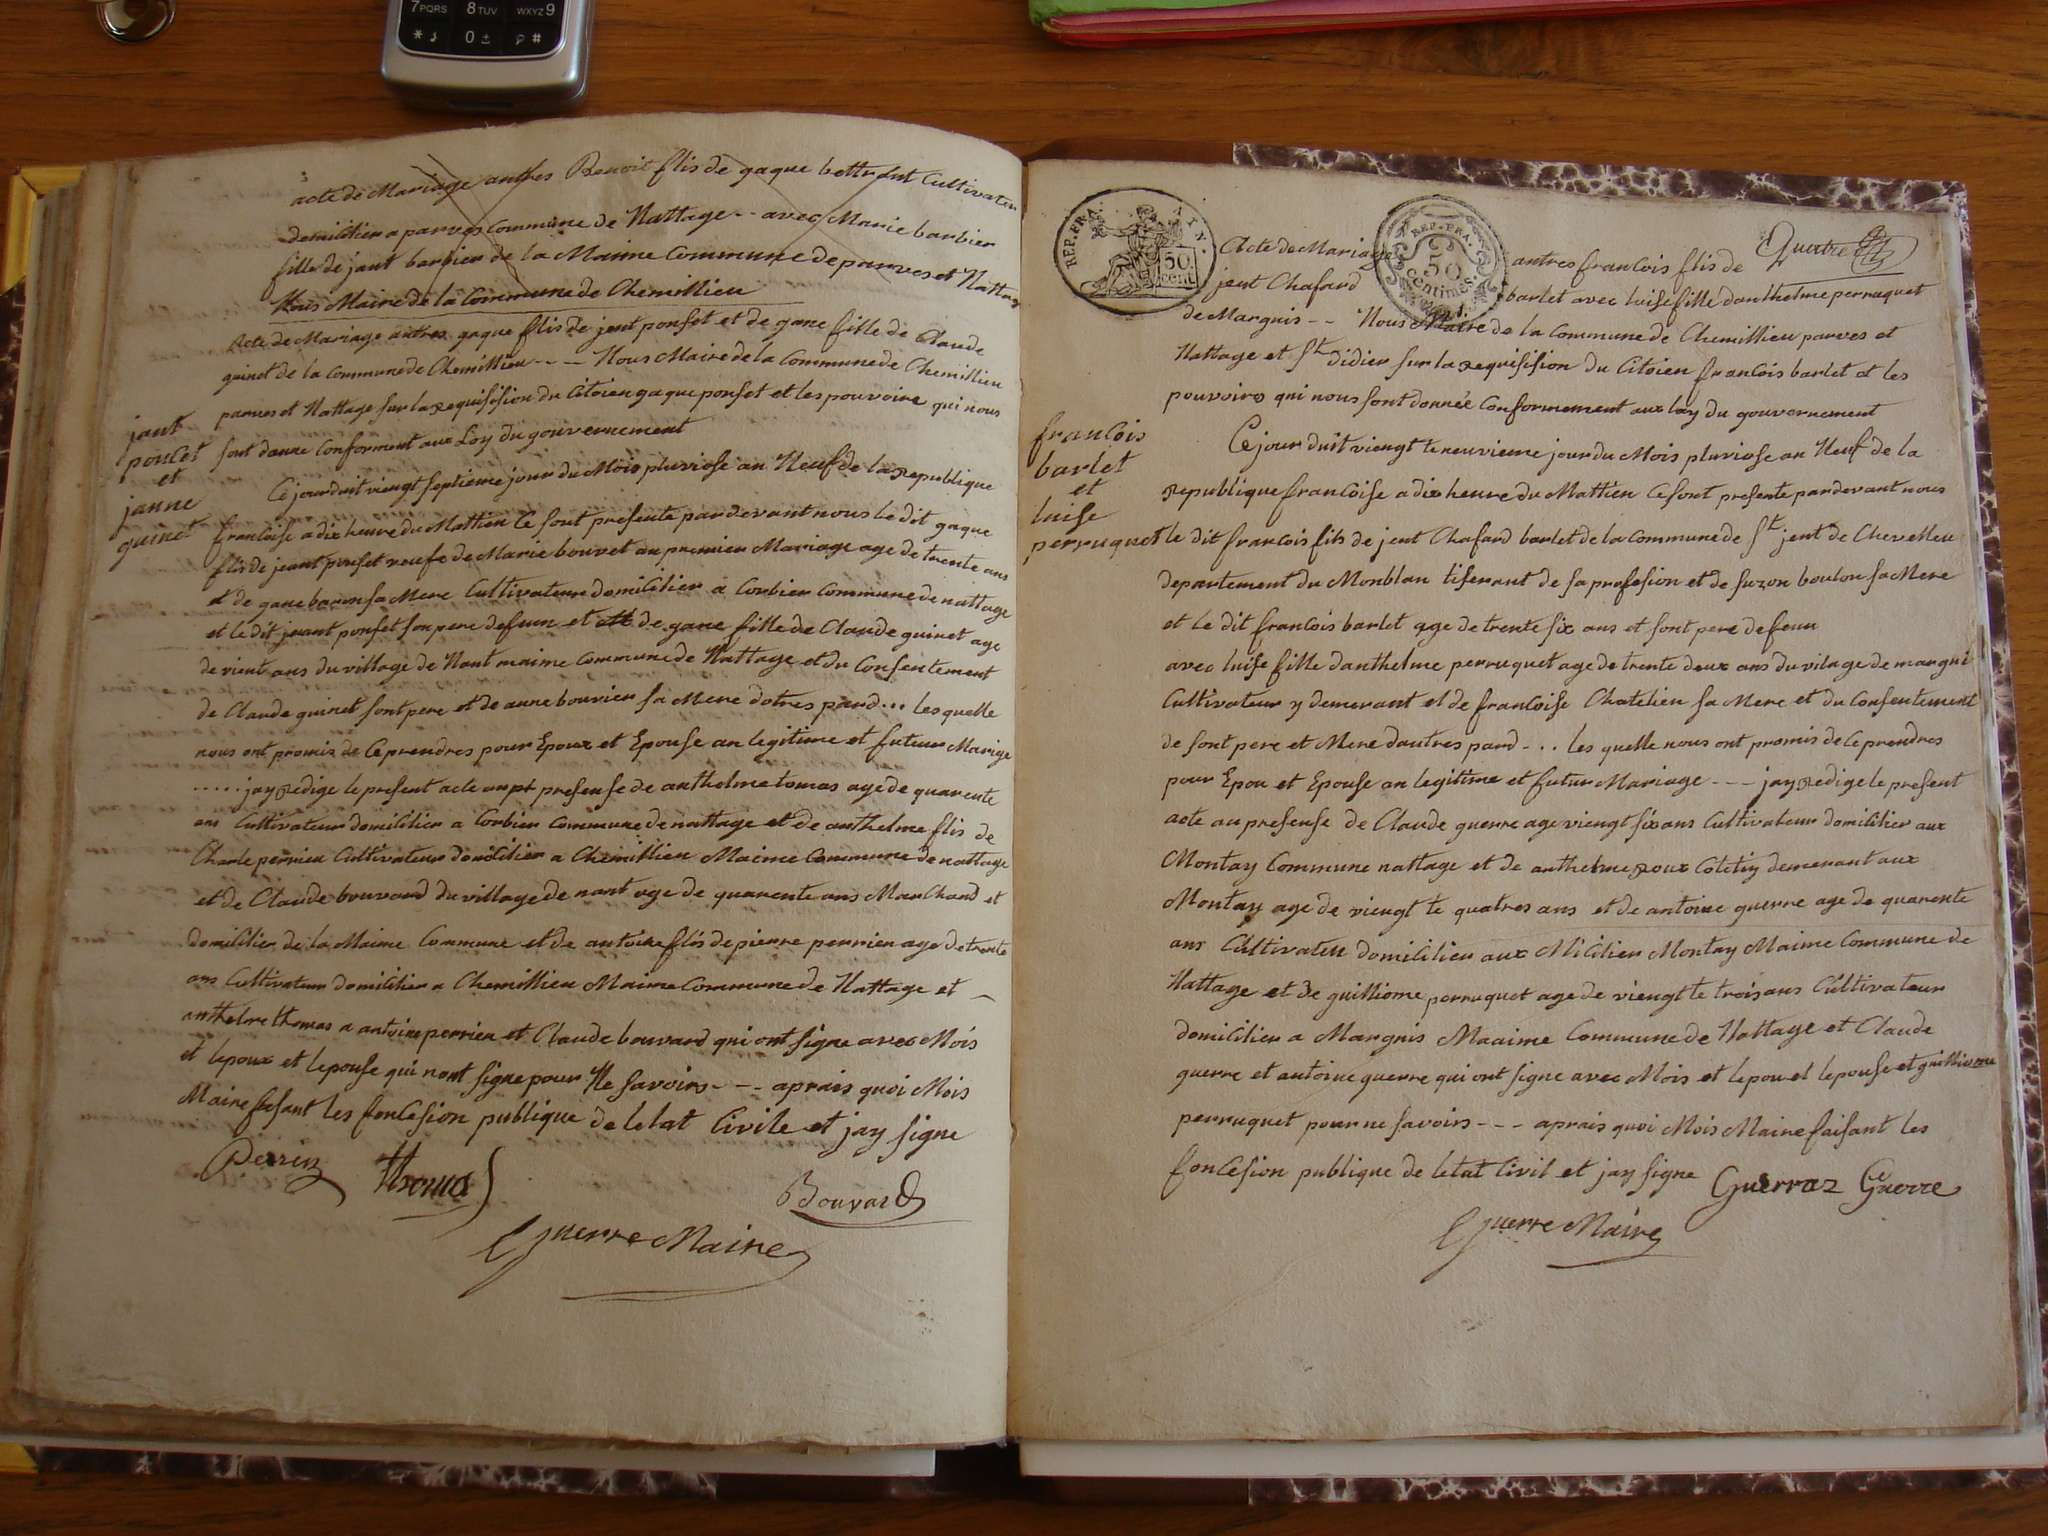 7PQRS 8TUV WXYZ9
* 0 #
acte de Mariage antres Benoit flis de gaque bettrant Cultivateu
demicilier a parves Commune de Nattage -- avec Marie barbier
fille de jant barbier de la Maime Commune de parves et Nattag
Nous Maire de la Commune de Chemillieu
Acte de Mariage antres gaque flis de jent ponset et de gane fille de Claude
guinet de la Commune de Chemillieu --- Nous Maire de la Commune de Chemillieu
parves et Nattage sur la requisision du Citoien gaque ponset et les pouvoire qui nous
sont donne Conforment aux Loy du gouvernement
jant
poncet
et
janne
guinet
Ce jour duit viengt septieme jour du Mois pluviose an Neuf de la republique
francoise a dix heure du Mattien Ce sont presente pardevant nous le dit gaque
flis de jeant ponset veufe de Marie bouvet au premier Mariage age de trente ans
et de gane baron sa Mere Cultivateur domicilier a Corbier Commune de nattage
et le dit jeant ponset son pere defeun et de gane fille de Claude guinet age
de vient ans du village de Nant maime Commune de Nattage et du Consentement
de Claude guinet sont pere et de anne bouvier sa Mere dotres pard ... les quelle
nous ont promis de Ceprendres pour Epoux et Epouse an legitime et futeur Marige
..... jay redige le present acte anpt presense de anthelme tomas age de quarente
ans Cultivateur domicilier a Corbier Commune de nattage et de anthelme flis de
Charle perrieu Cultivateur domicilier a Chemillieu Maime Commune de nattage
et de Claude bouvard du village de nant age de quarente ans Marchand et
domicilier de la Maime Commune et de antoine flis de pierre perrien age de trente
ans Cultivateur domicilier a Chemillieu Maime Commune de Nattage et
anthelme thomas a antoine perrien et Claude bouvard qui ont signe avec Mois
et lepoux et lepouse qui nont signe pour Ne savoirs --- aprais quoi Mois
Maire fasant les foncesion publique de letat Civile et jay signe
Perrin Thomas Bouvard
Guerre Maire
REP. FRA. 50 cent.
REP. FRA. 50 Centimes
Quatre
Acte de Mariage antres francois flis de
jent Chafard barlet avec luise fille danthelme perruquet
de Margnis -- Nous Maire de la Commune de Chemillieu parves et
Nattage et St didier sur la requisision du Citoien francois barlet et les
pouvoirs qui nous sont donnée Conformement aux loy du gouvernement
francois
barlet
et
luise
perruquet
Ce jour duit viengt te neuvieme jour du Mois pluviose an Neuf de la
republique francoise a dix heure du Mattien Ce sont presente pardevant nous
le dit francois fils de jent Chafard barlet de la Commune de St jent de Chevelleu
departement du Monblan tiserant de sa profesion et de suzon boulon sa Mere
et Le dit francois barlet age de trente six ans et sont pere defeun
avec luise fille danthelme perruquet age de trente deux ans du vilage de margni
Cultivateur y demerant et de francoise Chatelien sa Mere et du Consentement
de sont pere et Mere dautres pard -... les quelle nous ont promis de Ceprendres
pour Epou et Epouse an legitime et futur Mariage --- jay redige le present
acte au presense de Claude guerre age viengt six ans Cultivateur domicilier aux
Montay Commune nattage et de anthelme roux demerant aux
Montay age de viengt te quatres ans et de antoine guerre age de quarente
ans Cultivateu domicilieu aux Milieu Montay Maime Commune de
Nattage et de guilliome perruquet age de viengt te trois ans Cultivateur
domicilier a Margnis Maaime Commune de Nattage et Claude
guerre et antoine guerre qui ont signe avec Mois et lepou et lepouse et guilliome
perruquet pour ne savoirs --- aprais quoi Mois Maire faisant les
foncesion publique de letat Civil et jay signe Guerraz Guerre
Guerre Maire